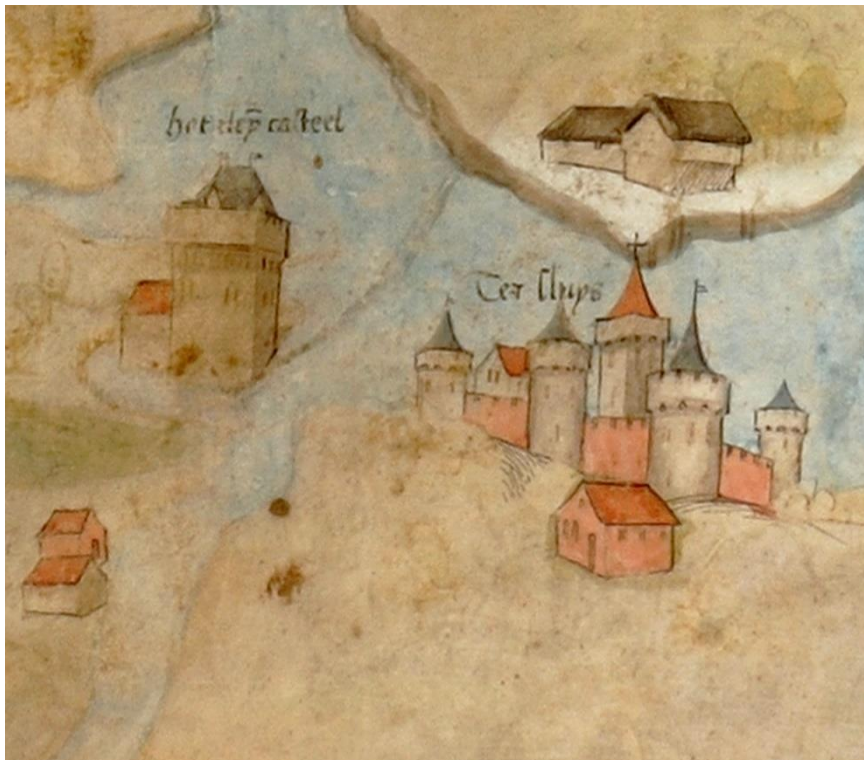 het clep̄ casteel
Ter Sluys